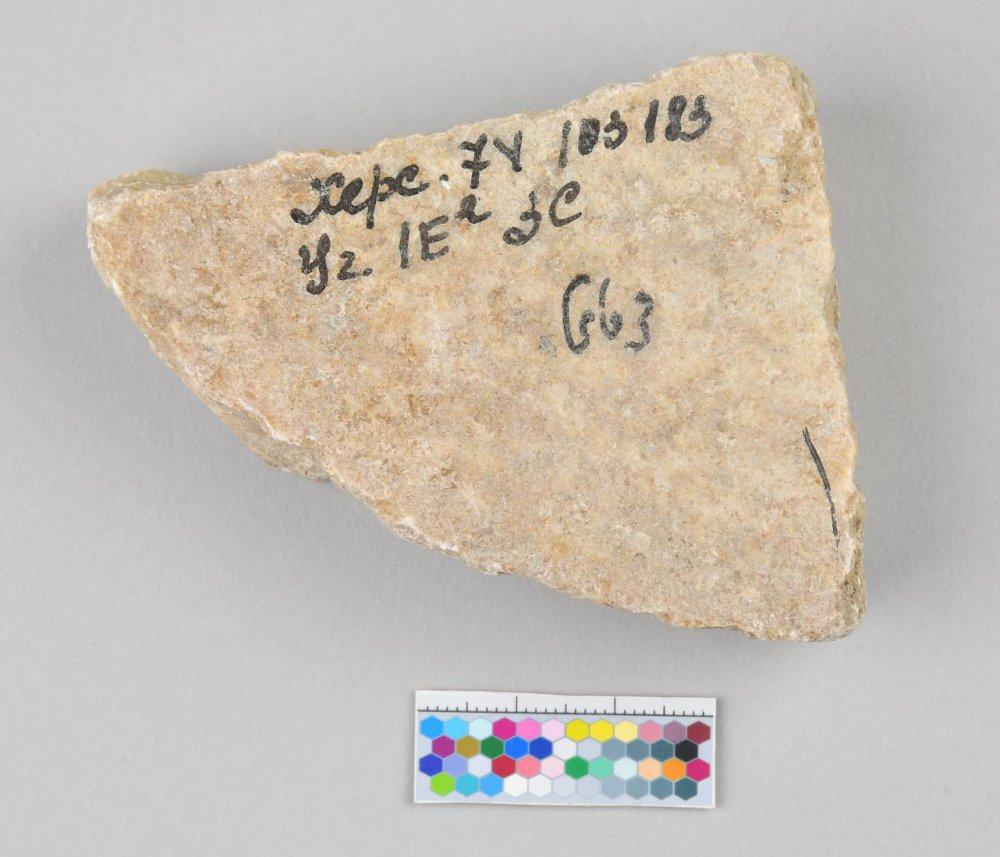 Херс. 74 103183
Уг. 1Е² 3С
663